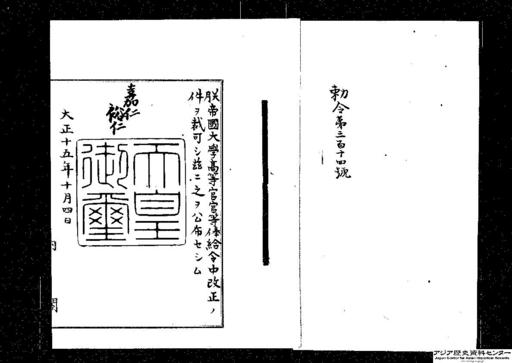 勅令第三百十四號
朕帝國大學高等官官等俸給令中改正ノ
件ヲ裁可シ茲ニ之ヲ公布セシム
嘉仁
裕仁
天皇御璽
大正十五年十月四日
内閣
アジア歴史資料センター
Japan Center for Asian Historical Records